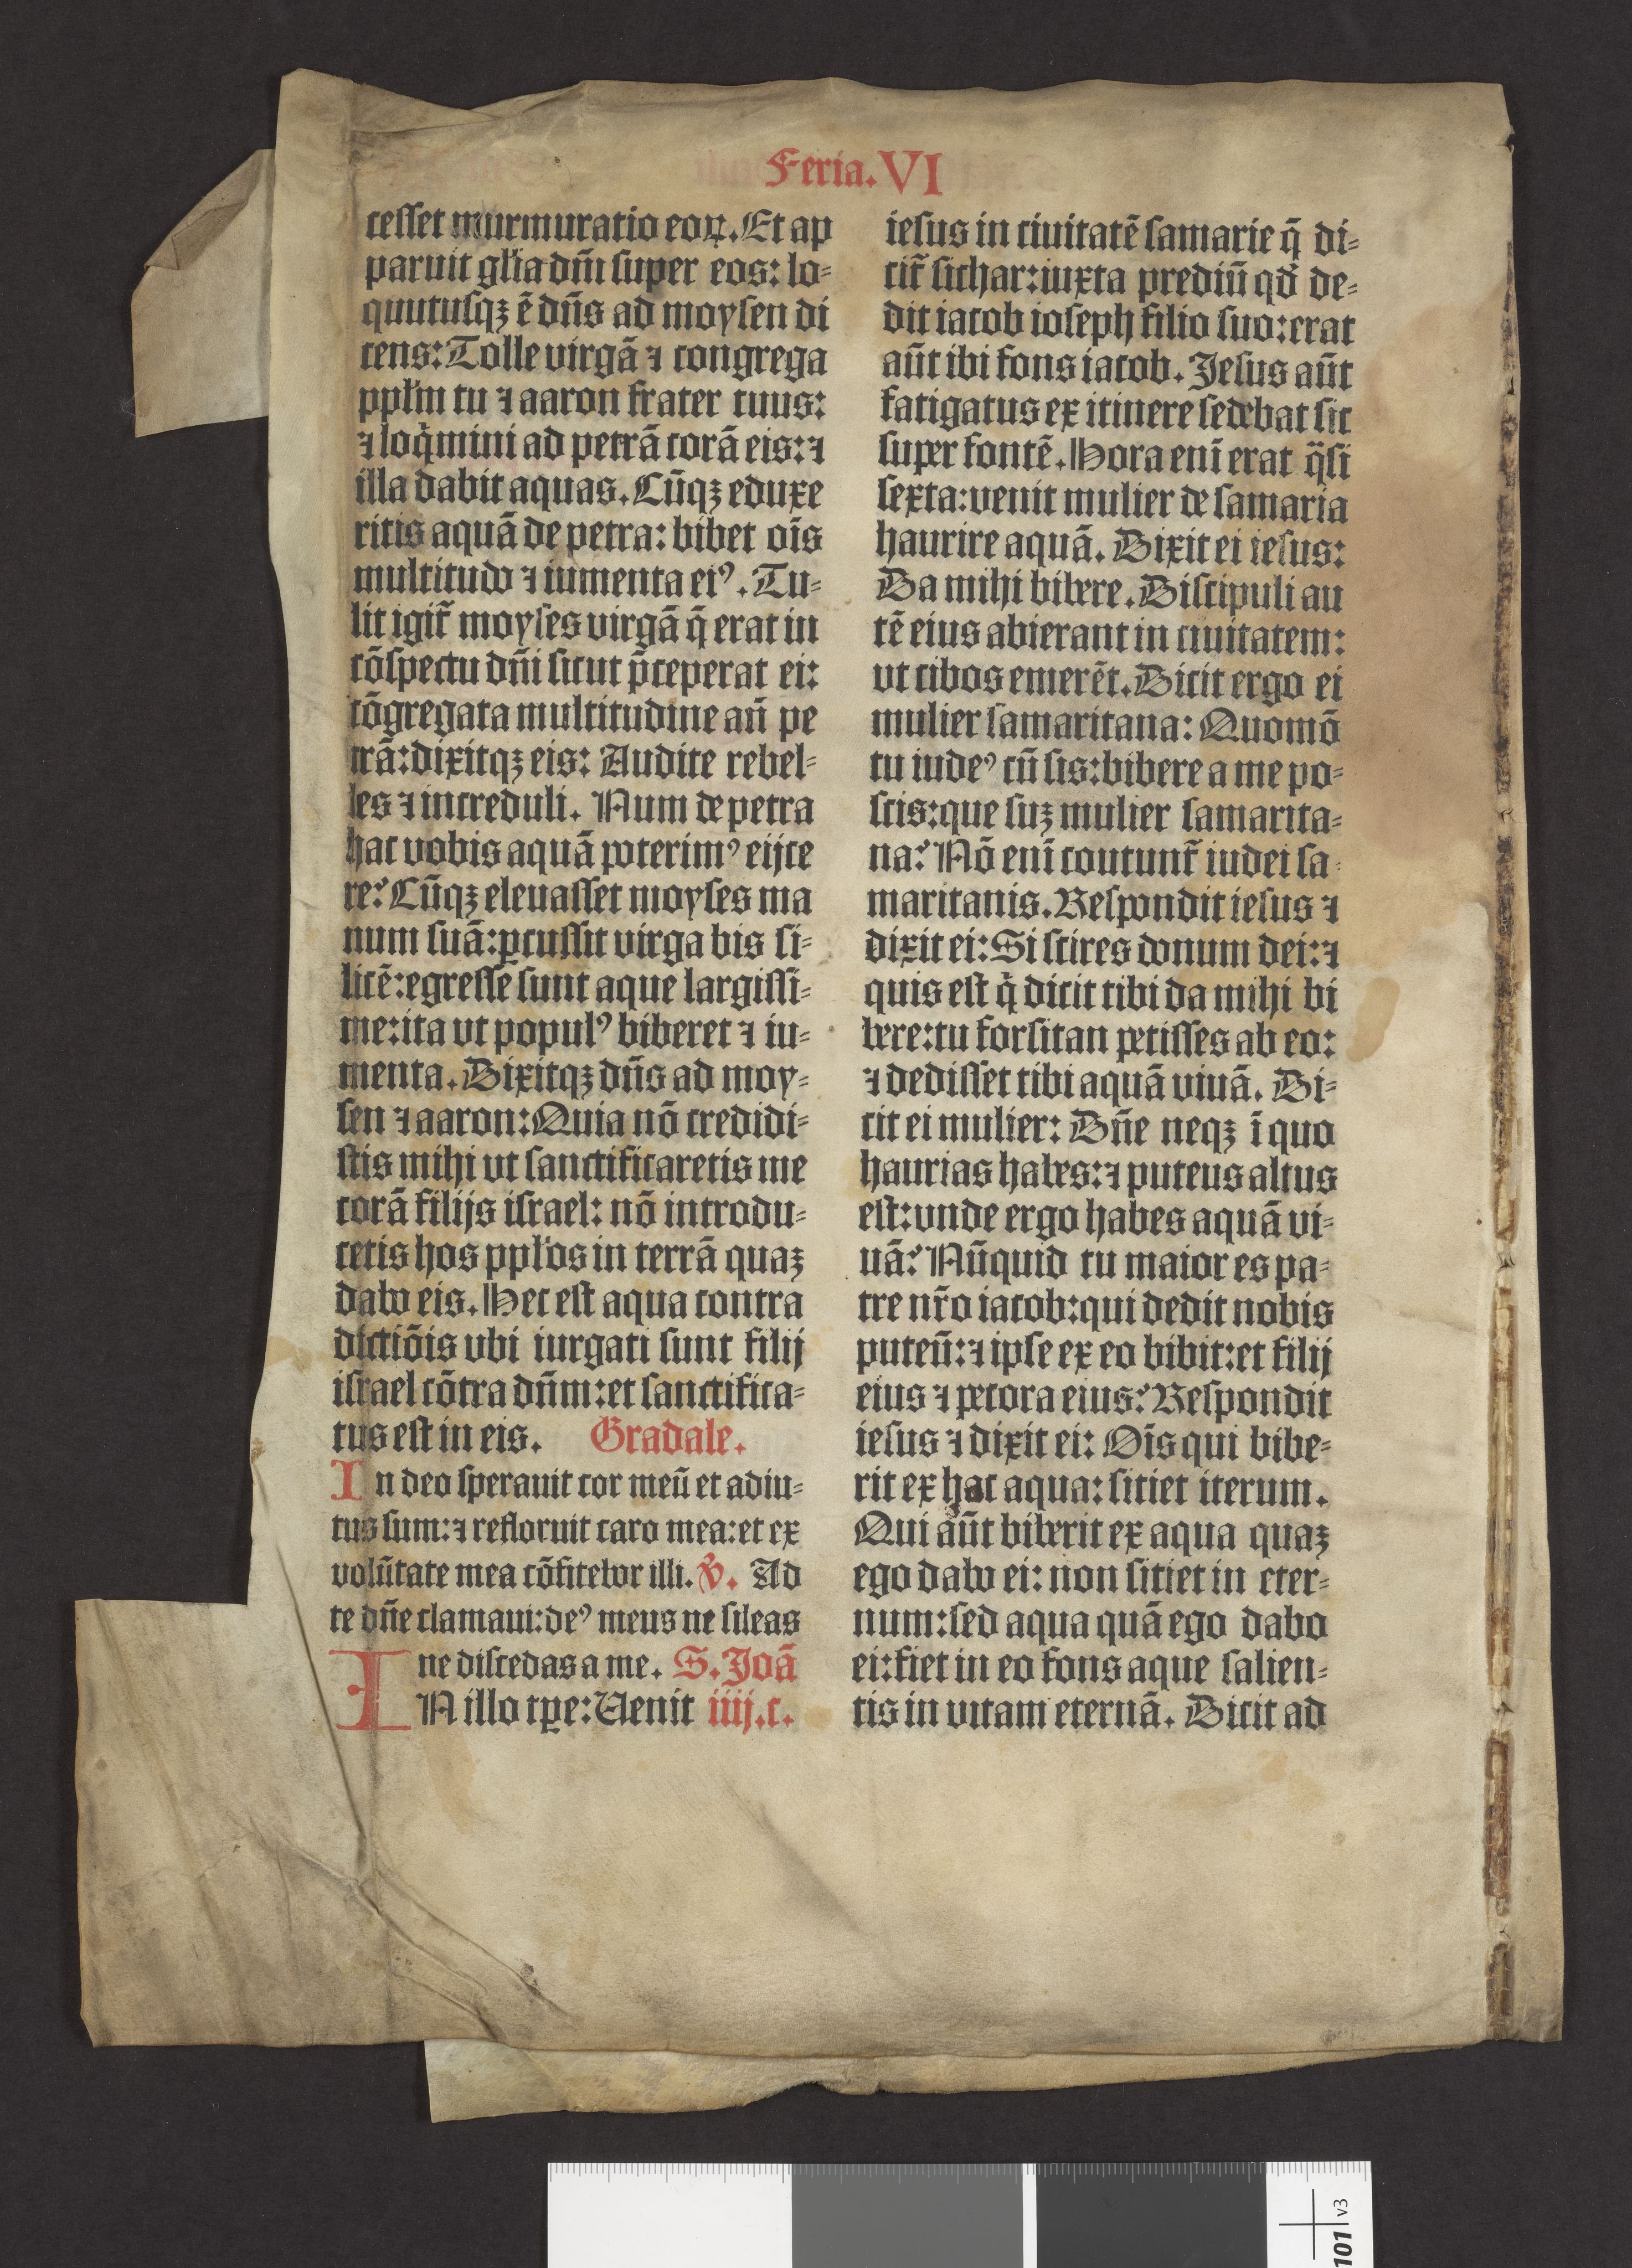 Feria. VI
ceſſet murmuratio eoꝝ. Et ap
paruit gl̕ia dn̄i ſuper eos: lo⸗
quutuſqꝫ ē dn̄s ad moyſen di
cens: Tolle virgā ⁊ congrega
ppl̕m tu ⁊ aaron frater tuus:
⁊ loq̇mini ad petrā corā eis: ⁊
illa dabit aquas. Cūqꝫ eduxe
ritis aquā de petra: bibet oīs
multitudo ⁊ iumenta eiꝰ. Tu⸗
lit igit̄ moyſes virgā q̄ erat in
cōſpectu dn̄i ſicut p̄ceperat ei:
cōgregata multitudine an̄ pe
trā: dixitqꝫ eis: Audite rebel⸗
les ⁊ increduli. Num de petra
hac vobis aquā poterimꝰ eijce
re? Cūqꝫ eleuaſſet moyſes ma
num ſuā: ꝑcuſſit virga bis ſi⸗
licē: egreſſe ſunt aque largiſſi⸗
me: ita vt populꝰ biberet ⁊ iu⸗
menta. Dixitqꝫ dn̄s ad moy⸗
ſen ⁊ aaron: Quia nō credidi⸗
ſtis mihi vt ſanctificaretis me
corā filijs iſrael: nō introdu⸗
cetis hos ppl̕os in terrā quaꝫ
dabo eis. Hec eſt aqua contra
dictiōis vbi iurgati ſunt filij
iſrael cōtra dn̄m: et ſanctifica⸗
tus eſt in eis. Gradale.
In deo ſperauit cor meū et adiu⸗
tus ſum: ⁊ refloruit caro mea: et ex
volūtate mea cōfitebor illi. ℣. Ad
te dn̄e clamaui: deꝰ meus ne ſileas
ne diſcedas a me. S. Joā
IN illo tꝑe: Uenit iiij. c.
ieſus in ciuitatē ſamarie q̄ di⸗
cit̄ ſichar: iuxta prediū qd̕ de⸗
dit iacob ioſeph filio ſuo: erat
aūt ibi fons iacob. Jeſus aūt
fatigatus ex itinere ſedebat ſic
ſuper fontē. Hora enī erat q̈ſi
ſexta: venit mulier de ſamaria
haurire aquā. Dixit ei ieſus:
Da mihi bibere. Diſcipuli au
tē eius abierant in ciuitatem:
vt cibos emerēt. Dicit ergo ei
mulier ſamaritana: Quomō
tu iudeꝰ cū ſis: bibere a me po⸗
ſcis: que ſuꝫ mulier ſamarita⸗
na? Nō enī coutunt̄ iudei ſa⸗
maritanis. Reſpondit ieſus ⁊
dixit ei: Si ſcires donum dei: ⁊
quis eſt q̇ dicit tibi da mihi bi
bere: tu forſitan petiſſes ab eo:
⁊ dediſſet tibi aquā viuā. Di⸗
cit ei mulier: Dn̄e neqꝫ ī quo
haurias habes: ⁊ puteus altus
eſt: vnde ergo habes aquā vi⸗
uā? Nūquid tu maior es pa⸗
tre nr̄o iacob: qui dedit nobis
puteū: ⁊ ipſe ex eo bibit: et filij
eius ⁊ pecora eius? Reſpondit
ieſus ⁊ dixit ei: Oīs qui bibe⸗
rit ex hac aqua: ſitiet iterum.
Qui aūt biberit ex aqua quaꝫ
ego dabo ei: non ſitiet in eter⸗
num: ſed aqua quā ego dabo
ei: fiet in eo fons aque ſalien⸗
tis in vitam eternā. Dicit ad
101 v3